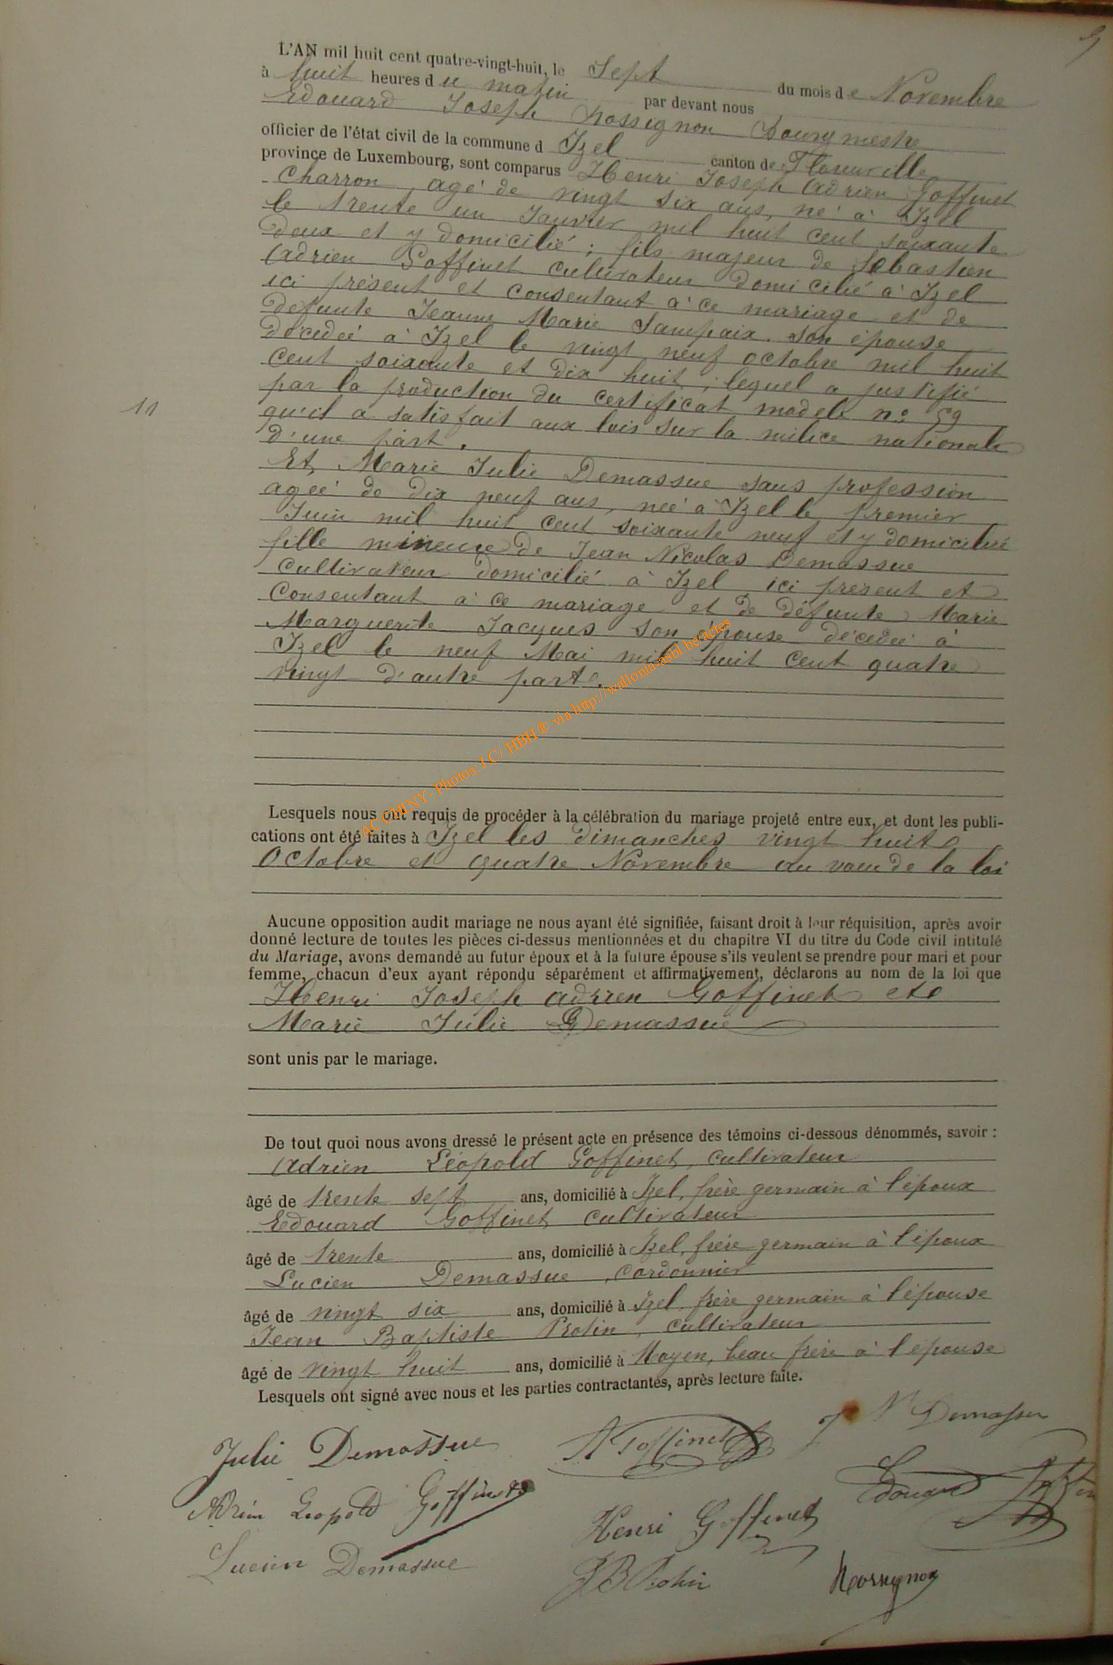 9
L'AN mil huit cent quatre-vingt-huit, le Sept du mois de Novembre
à huit heures du matin par devant nous
Edouard Joseph Rossignon Bourgmestre
officier de l'état civil de la commune d Izel canton de Florenville
province de Luxembourg, sont comparus Henri Joseph Adrien Goffinet
Charron, agé de vingt six ans, né à Izel
le trente un Janvier mil huit cent soixante
deux et y domicilié ; fils majeur de Sébastien
Adrien Goffinet cultivateur domicilié à Izel
ici présent et consentant à ce mariage et de
défunte Jeanne Marie Lampaix son épouse
décédée à Izel le vingt neuf octobre mil huit
cent soixante et dix huit ; lequel a justifié
par la production du certificat modele no 59
11
qu'il a satisfait aux lois sur la milice nationale
d'une part.
Et Marie Julie Demassue sans profession
agée de dix neuf ans, née à Izel le premier
Juin mil huit cent soixante neuf et y domiciliée
fille mineure de Jean Nicolas Demassue
cultivateur domicilié à Izel ici présent et
Consentant à ce mariage et de défunte Marie
Marguerite Jacques son épouse décédée à
Izel le neuf Mai mil huit cent quatre
vingt d'autre part.
AC CHINY - Photos J.C/ HBH © via http://wallonia-asbl.be/actes
Lesquels nous ont requis de procéder à la célébration du mariage projeté entre eux, et dont les publi-
cations ont été faites à Izel les dimanches vingt huit
Octobre et quatre Novembre au vœu de la loi
Aucune opposition audit mariage ne nous ayant été signifiée, faisant droit à leur réquisition, après avoir
donné lecture de toutes les pièces ci-dessus mentionnées et du chapitre VI du titre du Code civil intitulé
du Mariage, avons demandé au futur époux et à la future épouse s'ils veulent se prendre pour mari et pour
femme, chacun d'eux ayant répondu séparément et affirmativement, déclarons au nom de la loi que
Henri Joseph adrien Goffinet et
Marie Julie Demassue
sont unis par le mariage.
De tout quoi nous avons dressé le présent acte en présence des témoins ci-dessous dénommés, savoir :
Adrien Léopold Goffinet, cultivateur
âgé de trente sept ans, domicilié à Izel, frère germain à l'époux
Edouard Goffinet cultivateur
âgé de trente ans, domicilié à Izel, frère germain à l'époux
Lucien Demassue, cordonnier
âgé de vingt six ans, domicilié à Izel frère germain à l'épouse
Jean Baptiste Protin, cultivateur
âgé de vingt huit ans, domicilié à Moyen, beau frère à l'épouse
Lesquels ont signé avec nous et les parties contractantes, après lecture faite.
Julie Demassue A Goffinet J N Demassue
Adrien Léopold Goffinet Henri Goffinet Edouard Goffinet
Lucien Demassue J B Protin Rossignon